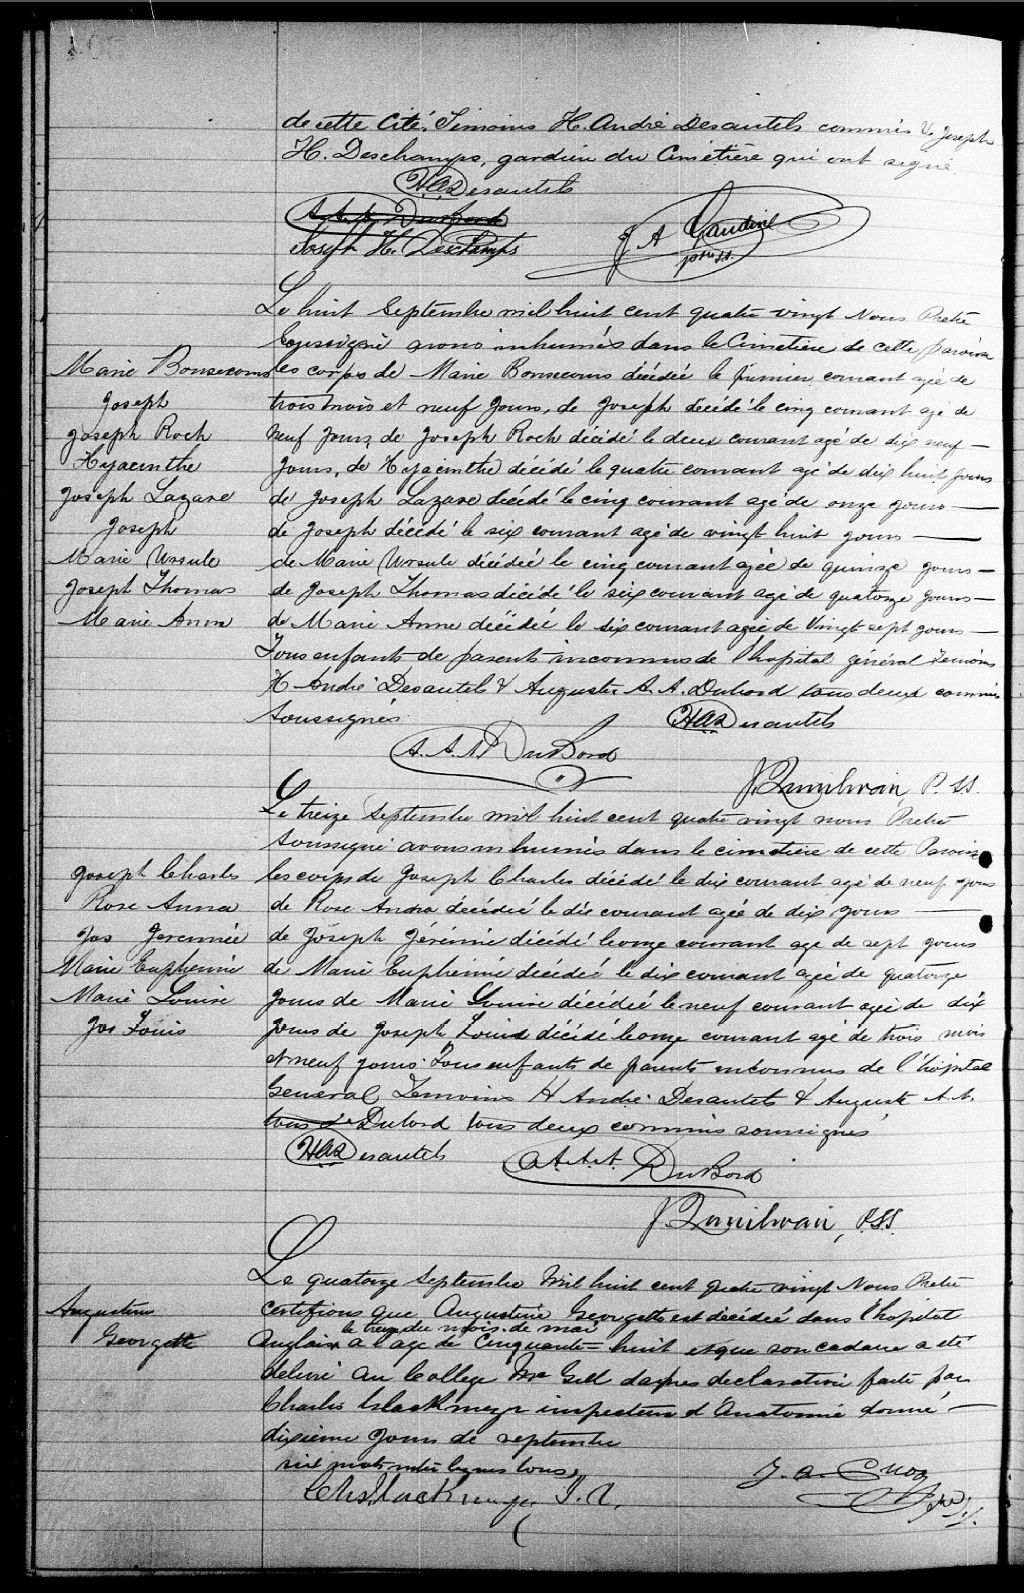 de cette Cité. Témoins H. André Desautels commis & Joseph
H. Deschamps, gardien du Cimetière qui ont signé.
HAD esautels
A. A. A. DuBord
Joseph H. Deschamps
J A Gaudin
ptre s.s.
Le huit Septembre mil huit cent quatre vingt Nous Prêtre
Soussigné avons inhumés dans le Cimetière de cette paroisse
Marie Bonsecours
les corps de Marie Bonsecours décédée le premier courant agée de
Joseph
trois mois et neuf jours, de Joseph décédé le cinq courant agé de
Joseph Roch
neuf jours, de Joseph Roch décédé le deux courant agé de dix neuf
Hyacinthe
jours, de Hyacinthe décédé le quatre courant agé de dix huit jours
Joseph Lazare
de Joseph Lazare décédé le cinq courant agé de onze jours
Joseph
de Joseph décédé le six courant agé de vingt huit jours
Marie Ursule
de Marie Ursule décédée le cinq courant agée de quinze jours
Joseph Thomas
de Joseph Thomas décédé le six courant agé de quatorze jours
Marie Anna
de Marie Anne décédée le six courant agée de Vingt sept jours
Tous enfants de parents inconnus de l'hopital général Temoins
H André Desautels & Auguste A. A. Dubord tous deux commis
Soussignés
HAD esautels
A. A. A. DuBord
P.SS.
Le treize Septembre mil huit cent quatre vingt nous Prêtre
Soussigné avons inhumés dans le cimetière de cette Paroisse
Joseph Charles
les corps de Joseph Charles décédé le dix courant agé de neuf jours
Rose Anna
de Rose Anna décédée le dix courant agée de dix jours
Jos Jeremie
de Joseph Jérémie décédé le onze courant age de sept jours
Marie Euphemie
de Marie Euphemie décédée le dix courant agée de quatorze
Marie Louise
jours de Marie Louise décédée le neuf courant agée de dix
Jos Louis
jours de Joseph Louis décédé le onze courant agé de trois mois
et neuf jours. Tous enfants de parents inconnus de l'hôpital
General Temoins H André Desautels & Auguste A. A.
Dubord tous deux commis soussignés
HAD esautels
A. A. A. DuBord
P.S.S.
Le quatorze Septembre Mil huit cent quatre vingt Nous Prêtre
Augustine
certifions que Augustine Georgette est décédée dans l'hopital
le treize du mois de mai
Georgette
Anglais à l'age de Cinquante-huit et que son cadavre a été
délivré au College Mc Gill daprès declaration faite par
Charles Glackmeyer inspecteur d'Anatomie donné
dixieme jour de septembre
six mots
Chs Glackmeyer I. A.
J. A. Cuoq